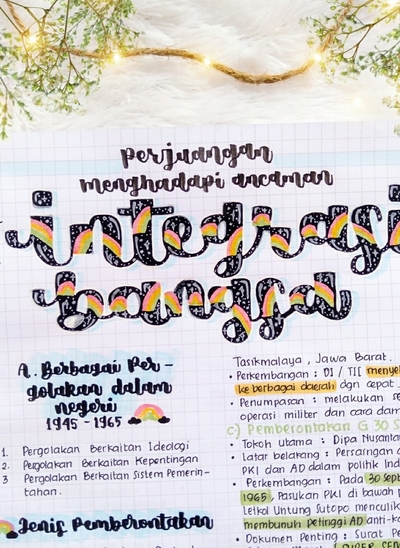 Perjuangan
menghadapi ancaman
integrasi
bangsa
A. Berbagai Per-
golakan dalam
negeri
1945 - 1965
1. Pergolakan Berkaitan Ideologi
2. Pergolakan Berkaitan Kepentingan
3 Pergolakan Berkaitan Sistem Pemerin-
tahan.
Jenis Pemberontakan
Tasikmalaya, Jawa Barat.
• Perkembangan : DI / TII
ke berbagai daerah dgn cepat
• Penumpasan : melakukan
operasi militer dan cara
c) Pemberontakan G 30 S
• Tokoh utama : Dipa
• Latar belakang : Persaingan
PKI dan AD dalam politik
• Perkembangan : Pada 30
1965, Pasukan PKI di bawah
Letkol Untung Sutopo
membunuh Petinggi AD
• Dokumen Penting : Surat